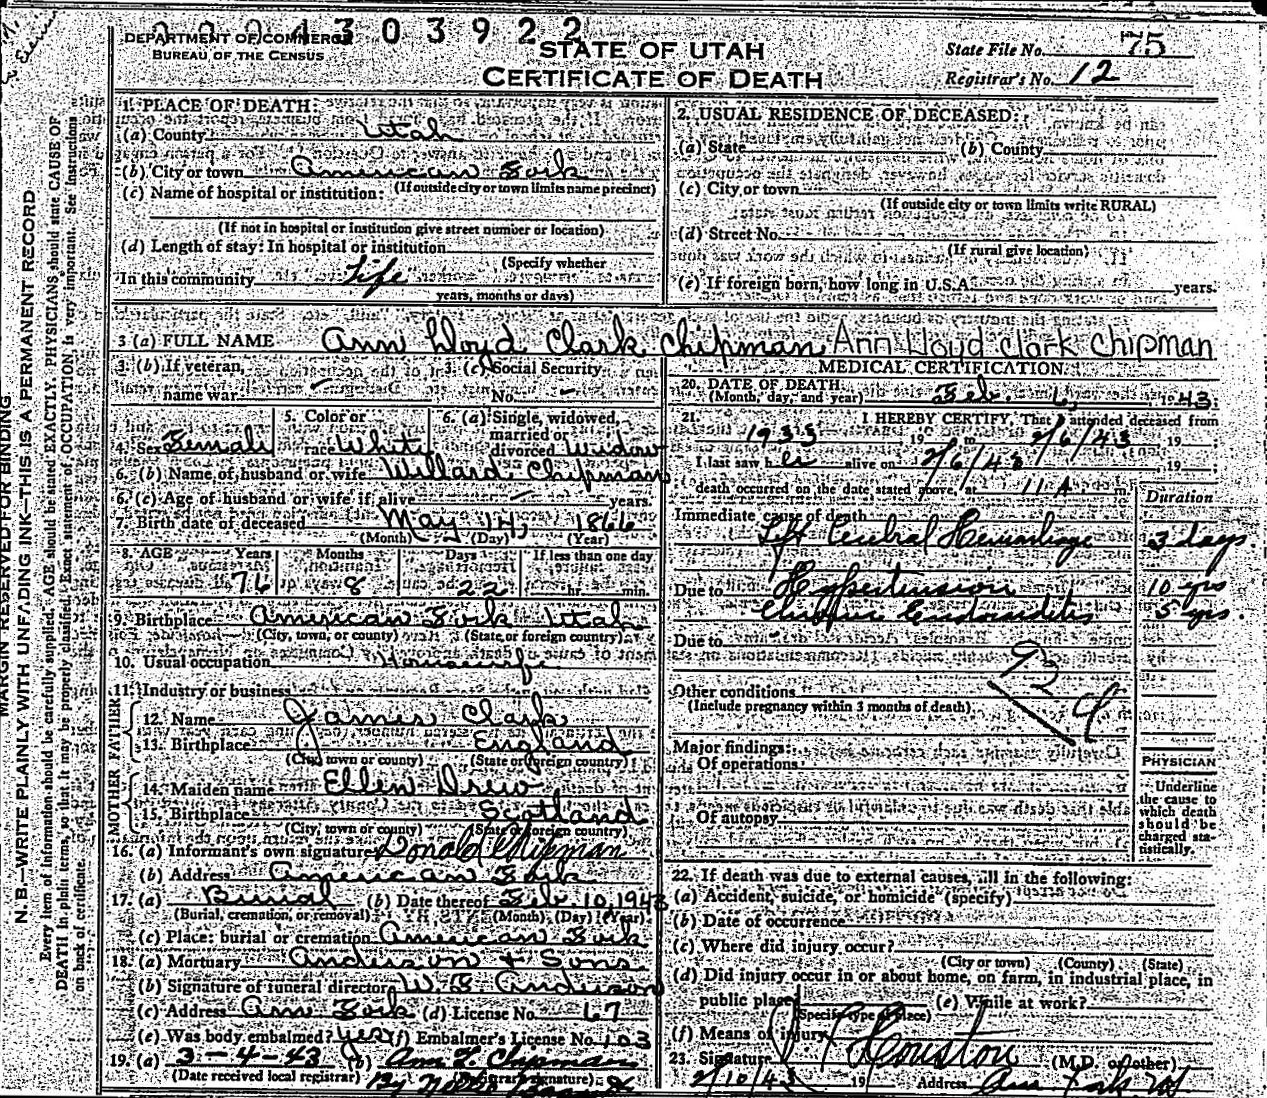 2 0 0 4 3 0 3 9 2 2
DEPARTMENT OF COMMERCE
BUREAU OF THE CENSUS
STATE OF UTAH
CERTIFICATE OF DEATH
State File No. 75
Registrar's No. 12
MARGIN RESERVED FOR BINDING
N. B.—WRITE PLAINLY WITH UNFADING INK—THIS IS A PERMANENT RECORD
Every item of information should be carefully supplied. AGE should be stated EXACTLY. PHYSICIANS should state CAUSE OF
DEATH in plain terms, so that it may be properly classified. Exact statement of OCCUPATION is very important. See Instructions
on back of certificate.
1. PLACE OF DEATH:
(a) County Utah
(b) City or town American Fork
(If outside city or town limits name precinct)
(c) Name of hospital or institution:
(If not in hospital or institution give street number or location)
(d) Length of stay: In hospital or institution
(Specify whether
In this community Life
years, months or days)
2. USUAL RESIDENCE OF DECEASED:
(a) State (b) County
(c) City or town
(If outside city or town limits write RURAL)
(d) Street No.
(If rural give location)
(e) If foreign born, how long in U.S.A. years.
3 (a) FULL NAME Ann Lloyd Clark Chipman Ann Lloyd Clark Chipman
3. (b) If veteran, name war —
3. (c) Social Security No. —
4. Sex Female
5. Color or race White
6. (a) Single, widowed, married or divorced Widow
6. (b) Name of husband or wife Willard Chipman
6. (c) Age of husband or wife if alive — years.
7. Birth date of deceased May 14, 1866
(Month) (Day) (Year)
8. AGE Years Months Days If less than one day
76 8 22 hr. min.
9. Birthplace American Fork Utah
(City, town, or county) (State or foreign country)
10. Usual occupation Housewife
11. Industry or business
FATHER
12. Name James Clark
13. Birthplace England
(City, town or county) (State or foreign country)
MOTHER
14. Maiden name Ellen Drew
15. Birthplace Scotland
(City, town or county) (State or foreign country)
16. (a) Informant's own signature Donald Chipman
(b) Address American Fork
17. (a) Burial (b) Date thereof Feb. 10, 1943
(Burial, cremation, or removal) (Month) (Day) (Year)
(c) Place: burial or cremation American Fork
18. (a) Mortuary Anderson & Sons
(b) Signature of funeral director W. E. Anderson
(c) Address Am Fork (d) License No. 67
(e) Was body embalmed? yes (f) Embalmer's License No. 103
19. (a) 3-4-43 (b) Ann L. Chipman
(Date received local registrar) (Registrar's signature)
MEDICAL CERTIFICATION
20. DATE OF DEATH Feb. 6, 1943
(Month, day, and year)
21. I HEREBY CERTIFY, That I attended deceased from
1935 19 to 2/6/43 19
I last saw her alive on 2/6/43 19
death occurred on the date stated above, at 11 A. m.
Duration
Immediate cause of death
Left Cerebral Hemorrhage 3 days
Due to Hypertension 10 yrs
Endocarditis 5 yrs.
Due to
Other conditions
(Include pregnancy within 3 months of death)
Major findings:
Of operations
Of autopsy
PHYSICIAN
Underline
the cause to
which death
should be
charged sta-
tistically.
22. If death was due to external causes, fill in the following:
(a) Accident, suicide, or homicide (specify)
(b) Date of occurrence
(c) Where did injury occur?
(City or town) (County) (State)
(d) Did injury occur in or about home, on farm, in industrial place, in
public place? (e) While at work?
(Specify type of place)
(f) Means of injury
23. Signature Houston (M.D. or other)
2/10/43 19 Address Am Fork Ut